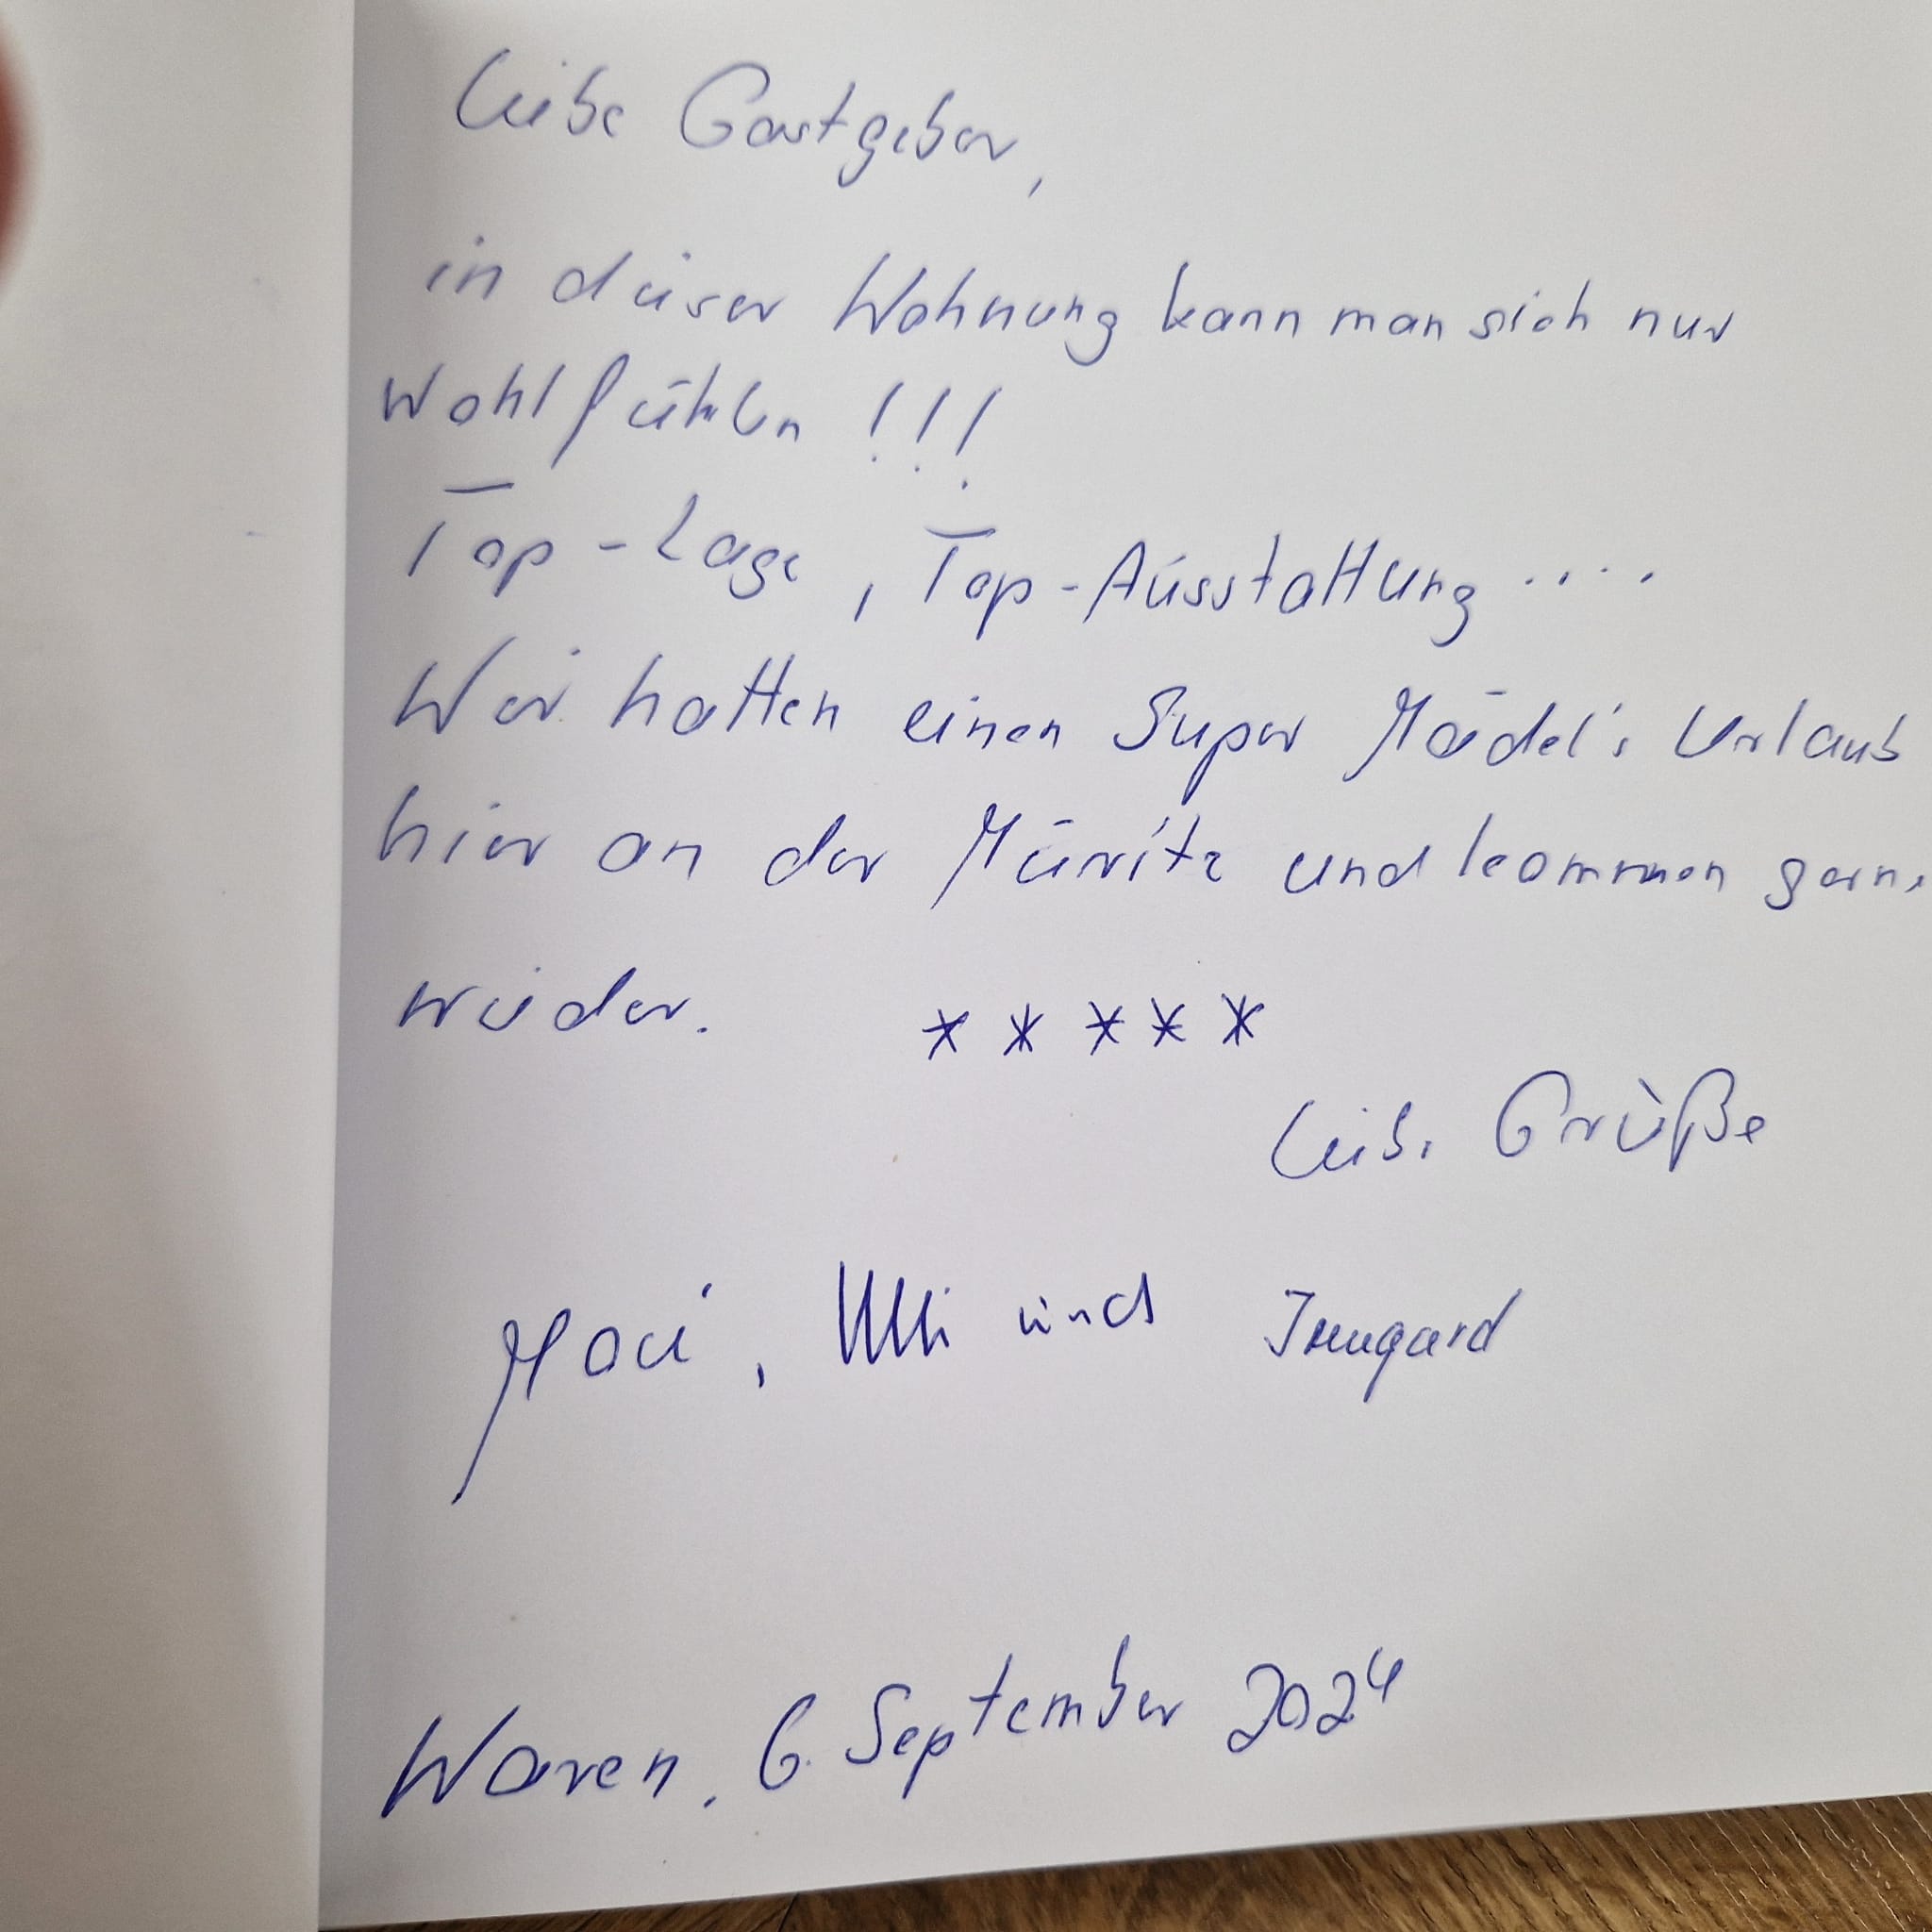 Liebe Gastgeber,
in dieser Wohnung kann man sich nur
wohlfühlen !!!
Top-Lage, Top-Ausstattung ....
Wir hatten einen Super Mädel's Urlaub
hier an der Müritz und kommen gerne
wieder. * * * * *
Liebe Grüße
Ulli und Irmgard
Waren, 6. September 2024